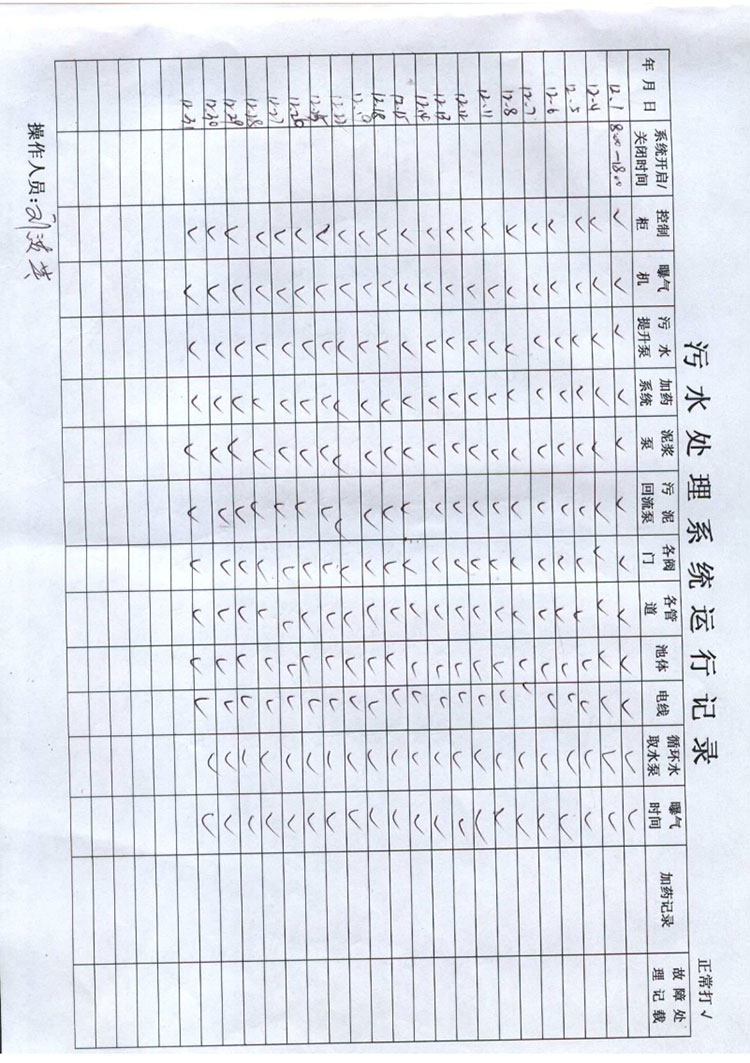 污水处理系统运行记录
正常打√
年月日 系统开启/关闭时间 控制柜 曝气机 污水提升泵 加药系统 泥浆泵 污泥回流泵 各阀门 各管道 池体 电线 循环水取水泵 曝气时间 加药记录 故障处理记载
12.1 8:00-18:00 √ √ √ √ √ √ √ √ √ √ √ √
12.4 √ √ √ √ √ √ √ √ √ √ √ √
12.5 √ √ √ √ √ √ √ √ √ √ √ √
12.6 √ √ √ √ √ √ √ √ √ √ √ √
12.7 √ √ √ √ √ √ √ √ √ √ √ √
12.8 √ √ √ √ √ √ √ √ √ √ √ √
12.11 √ √ √ √ √ √ √ √ √ √ √ √
12.12 √ √ √ √ √ √ √ √ √ √ √ √
12.13 √ √ √ √ √ √ √ √ √ √ √ √
12.14 √ √ √ √ √ √ √ √ √ √ √ √
12.15 √ √ √ √ √ √ √ √ √ √ √ √
12.18 √ √ √ √ √ √ √ √ √ √ √ √
√ √ √ √ √ √ √ √ √ √ √ √
√ √ √ √ √ √ √ √ √ √ √ √
√ √ √ √ √ √ √ √ √ √ √ √
12.26 √ √ √ √ √ √ √ √ √ √ √ √
12.27 √ √ √ √ √ √ √ √ √ √ √ √
12.28 √ √ √ √ √ √ √ √ √ √ √ √
12.29 √ √ √ √ √ √ √ √ √ √ √ √
12.30 √ √ √ √ √ √ √ √ √ √ √ √
12.31 √ √ √ √ √ √ √ √ √ √
操作人员: